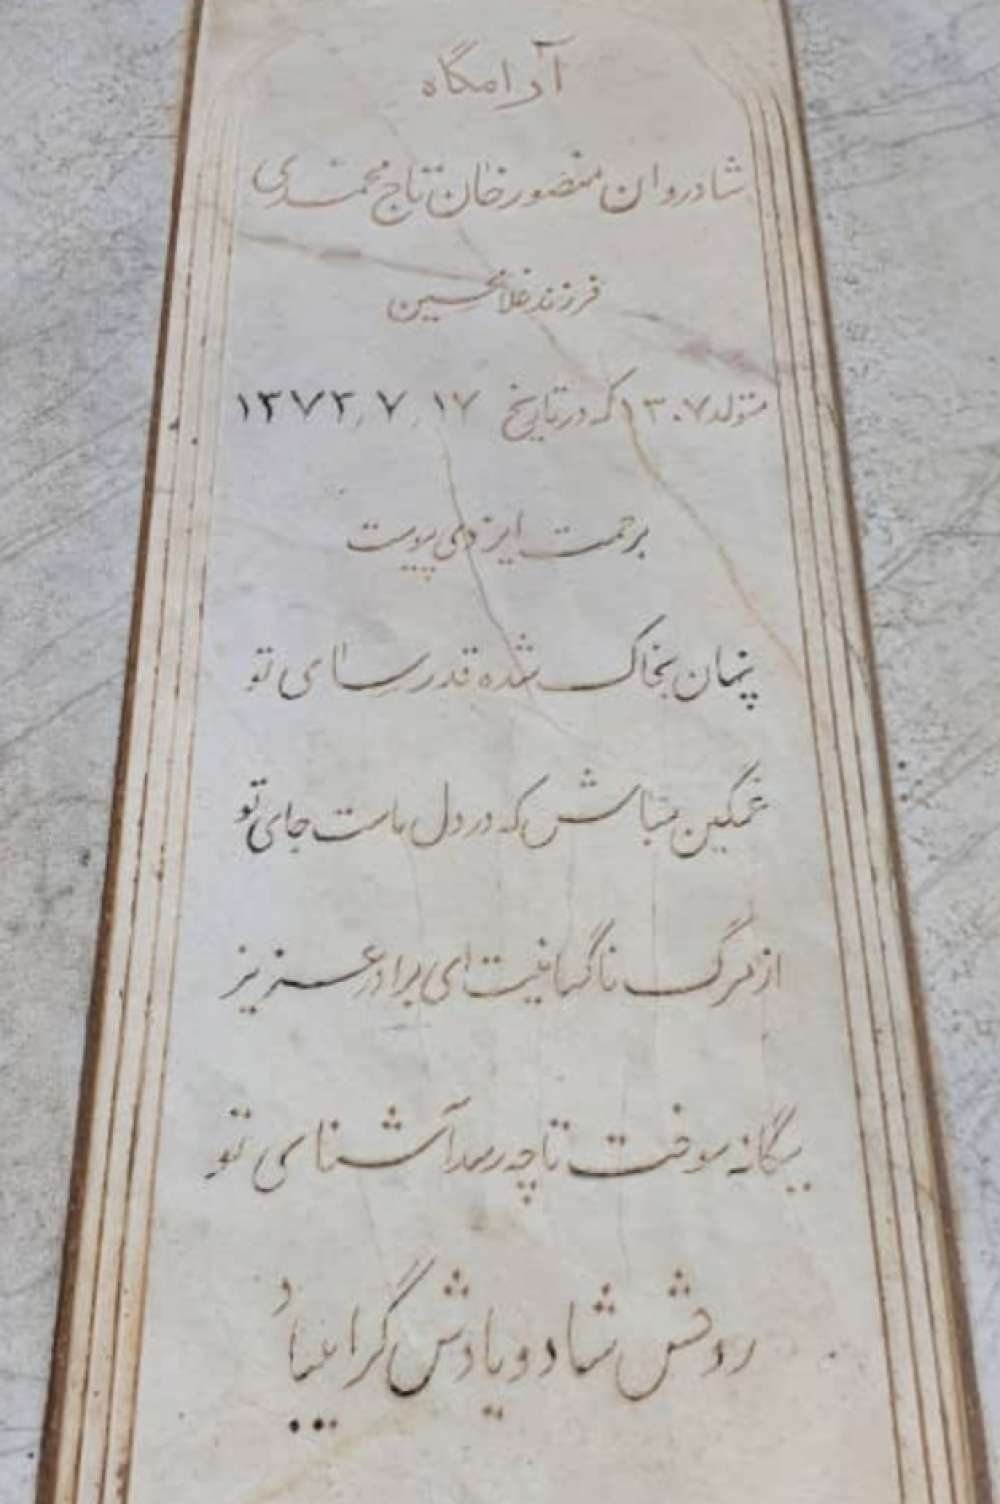 آرامگاه
شادروان منصور خان تاج محمدی
فرزند غلامحسین
متولد ۱۳۰۷ که در تاریخ ۱۷٫۷٫۱۳۷۳
برحمت ایزدی پیوست
پنهان بخاک شده قد رسای تو
غمگین مباش که در دل ماست جای تو
از مرگ ناگهانیت ای برادر عزیز
بیگانه سوخت تا چه رسد آشنای تو
روحش شاد و یادش گرامیباد